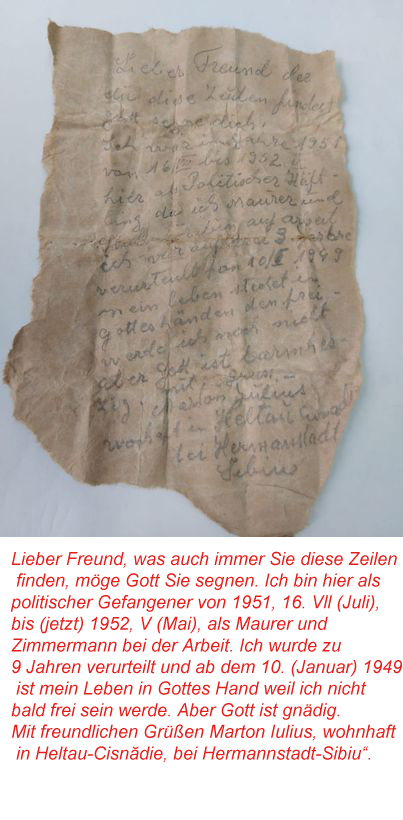 Lieber Freund der
du diese Zeilen findest
Gott segne dich.
Ich war im Jahre 1951
von 16/VII bis 1952 V
hier als Politischer Häft-
ling, da ich Maurer und
bin auf arbeit
ich war auf
verurteilt fon 10/I 1949
mein leben stehet in
Gotteshänden den frei-
werde ich noch nicht
aber Gott ist barmher-
zig. mit
Marton Julius
wohnhaft in Heltau
bei Hermanstadt
Sibiu
Lieber Freund, was auch immer Sie diese Zeilen
finden, möge Gott Sie segnen. Ich bin hier als
politischer Gefangener von 1951, 16. VII (Juli),
bis (jetzt) 1952, V (Mai), als Maurer und
Zimmermann bei der Arbeit. Ich wurde zu
9 Jahren verurteilt und ab dem 10. (Januar) 1949
ist mein Leben in Gottes Hand weil ich nicht
bald frei sein werde. Aber Gott ist gnädig.
Mit freundlichen Grüßen Marton Iulius, wohnhaft
in Heltau-Cisnădie, bei Hermannstadt-Sibiu“.